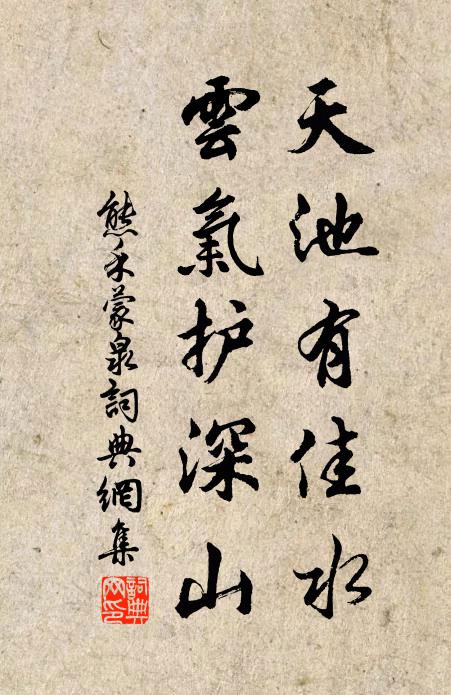 天池有佳水
雲氣护深山
熊禾蒙泉詞典網集
詞典網印